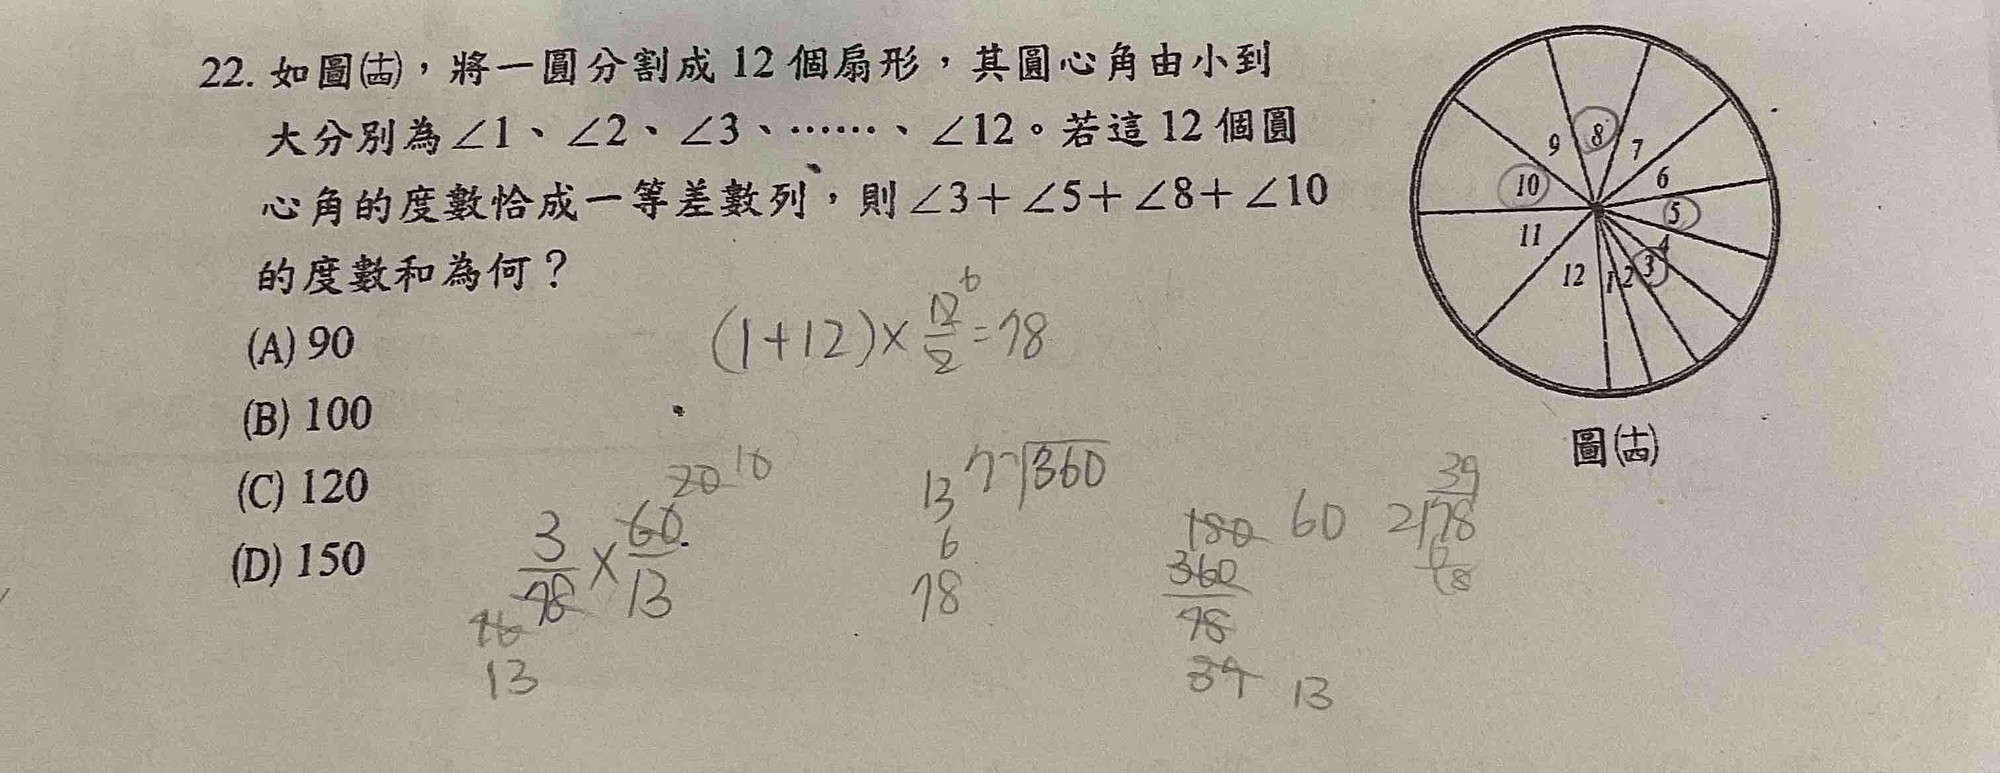 22. 如圖(十四)，將一圓分割成 12 個扇形，其圓心角由小到
大分別為∠1、∠2、∠3、……、∠12。若這 12 個圓
心角的度數恰成一等差數列，則∠3＋∠5＋∠8＋∠10
的度數和為何？
(A) 90
(B) 100
(C) 120
(D) 150
9 8 7
10 6
5
11 4
12 1 2 3
圖(十四)
(1+12)×12/2=78
6
20 10
3/78×60/13
13
360
13
6
78
180 60
360
78
39 13
39
2 78
6
18